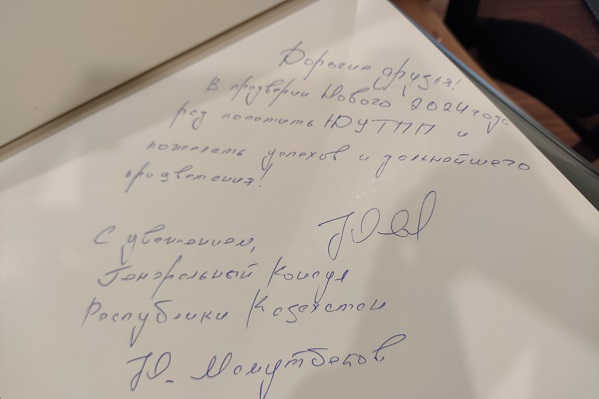 Дорогие друзья!
В преддверии Нового 2024 года
рад посетить ЮУТПП и
пожелать успехов и дальнейшего
процветания!
С уважением,
Генеральный Консул
Республики Казахстан